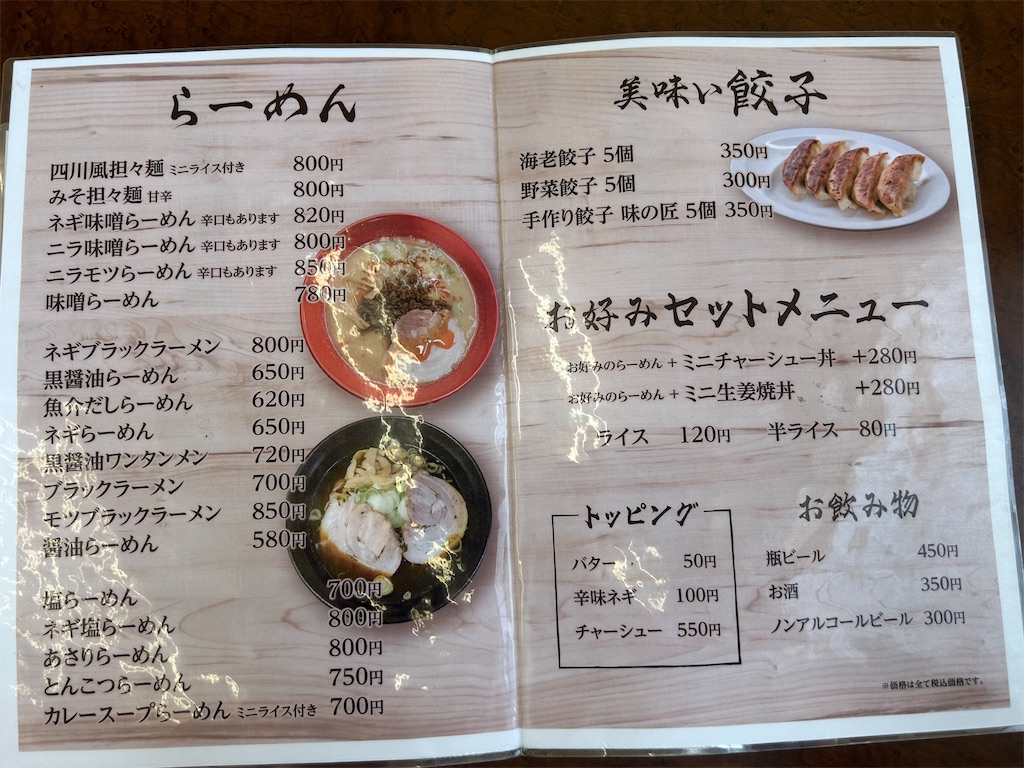 らーめん
四川風担々麺 ミニライス付き 800円
みそ担々麺 甘辛 800円
ネギ味噌らーめん 辛口もあります 820円
ニラ味噌らーめん 辛口もあります 800円
ニラモツらーめん 辛口もあります 850円
味噌らーめん 780円
ネギブラックラーメン 800円
黒醤油らーめん 650円
魚介だしらーめん 620円
ネギらーめん 650円
黒醤油ワンタンメン 720円
ブラックラーメン 700円
モツブラックラーメン 850円
醤油らーめん 580円
塩らーめん 700円
ネギ塩らーめん 800円
あさりらーめん 800円
とんこつらーめん 750円
カレースープらーめん ミニライス付き 700円
美味い餃子
海老餃子 5個 350円
野菜餃子 5個 300円
手作り餃子 味の匠 5個 350円
お好みセットメニュー
お好みのらーめん + ミニチャーシュー丼 +280円
お好みのらーめん + ミニ生姜焼丼 +280円
ライス 120円 半ライス 80円
トッピング
バター 50円
辛味ネギ 100円
チャーシュー 550円
お飲み物
瓶ビール 450円
お酒 350円
ノンアルコールビール 300円
※価格は全て税込価格です。